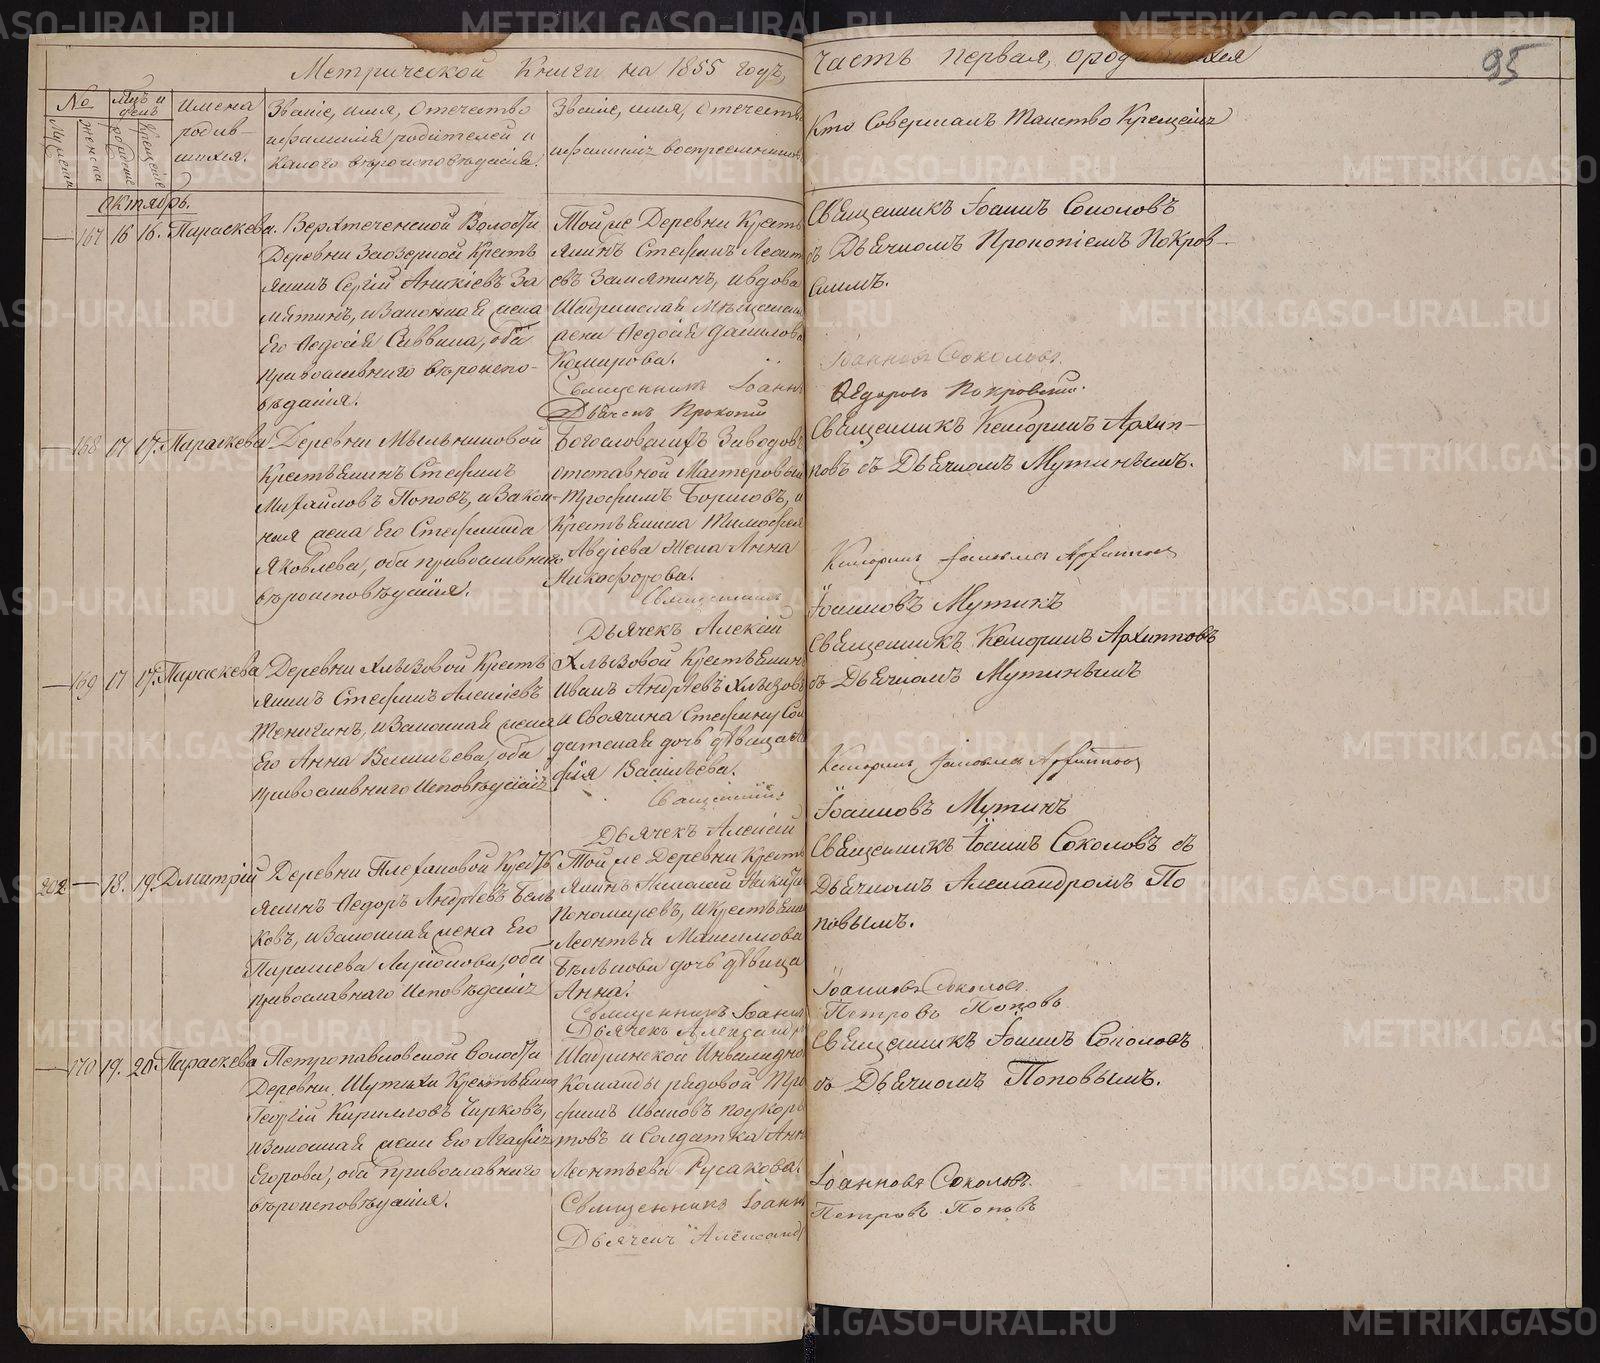 Метрической Книги на 1855 годъ,
часть первая, о родившихся
95
№
Мѣс. и день
Имена родив-
шихся.
Званіе, имя, отечество
и фамилія родителей и
какого вѣроисповѣданія.
Званіе, имя, отечество
и фамилія воспріемниковъ
Кто совершалъ таинство крещенія
Октябрь.
167 16 16. Параскева.
Верхтеченской Волости
Деревни Заозерной Кресть
янинъ Сергій Аникіевъ За
мятинъ, и законная жена
Его Ѳедосія Саввина, оба
православнаго вѣроиспо-
вѣданія.
Той же Деревни Кресть
янинъ Стефанъ Леонть
евъ Замятинъ, и вдова
Шадринская Мѣщанская
жена Ѳедосія Данилова
Кошкарова.
Священникъ Іоаннъ
Дьячекъ Прокопій
Священникъ Іоаннъ Соколовъ
съ Дьячкомъ Прокопіемъ Покров-
скимъ.
Іоанновъ Соколовъ.
Ѳедоровъ Покровскій.
168 17 17. Параскева
Деревни Мыльниковой
Крестьянинъ Стефанъ
Михайловъ Поповъ, и закон
ная жена Его Степанида
Яковлева, оба православнаго
вѣроисповѣданія.
Богословскихъ Заводовъ
отставной Мастеровый
Трофимъ Борисовъ, и
Крестьянина Тимофея
Авдіева жена Анна
Никифорова.
Священникъ
Дьячекъ Алексій
Священникъ Архип-
повъ съ Дьячкомъ Мутинымъ.
Архиповъ
Іоанновъ Мутинъ
169 17 17. Параскева
Деревни Хлызовой Кресть
янинъ Стефанъ Алексіевъ
и законная жена
Его Анна Васильева, оба
православнаго исповѣданія
Хлызовой Крестьянинъ
Иванъ Андреевъ Хлызовъ
и Своячина Стефану Сол
датская дочь дѣвица
Васильева.
Священникъ
Дьячекъ Алексій
Священникъ Архипповъ
съ Дьячкомъ Мутинымъ
Архиповъ
Іоанновъ Мутинъ
202 18. 19. Дмитрій
Деревни Плехановой Кресть
янинъ Ѳедоръ Андреевъ Бель
ковъ, и законная жена Его
Параскева Ларіонова, оба
православнаго исповѣданія
Той же Деревни Кресть
янинъ Николай
Пономаревъ, и Крестьянина
Леонтья Максимова
Бѣлькова дочь дѣвица
Анна.
Священникъ Іоаннъ
Дьячекъ Александръ
Священникъ Іоаннъ Соколовъ съ
Дьячкомъ Александромъ По
повымъ.
Іоанновъ Соколовъ.
Петровъ Поповъ
170 19. 20. Параскева
Петропавловской волости
Деревни Шутихи Крестьянинъ
Георгій Кирилловъ Чирковъ,
и законная жена Его Агафія
Егорова, оба православнаго
вѣроисповѣданія.
Шадринской Инвалидной
Команды рядовой Тро
фимъ Ивановъ
и Солдатка Анна
Леонтьева Русакова.
Священникъ Іоаннъ
Дьячекъ Александръ
Священникъ Іоаннъ Соколовъ
съ Дьячкомъ Поповымъ.
Іоанновъ Соколовъ.
Петровъ Поповъ
METRIKI.GASO-URAL.RU